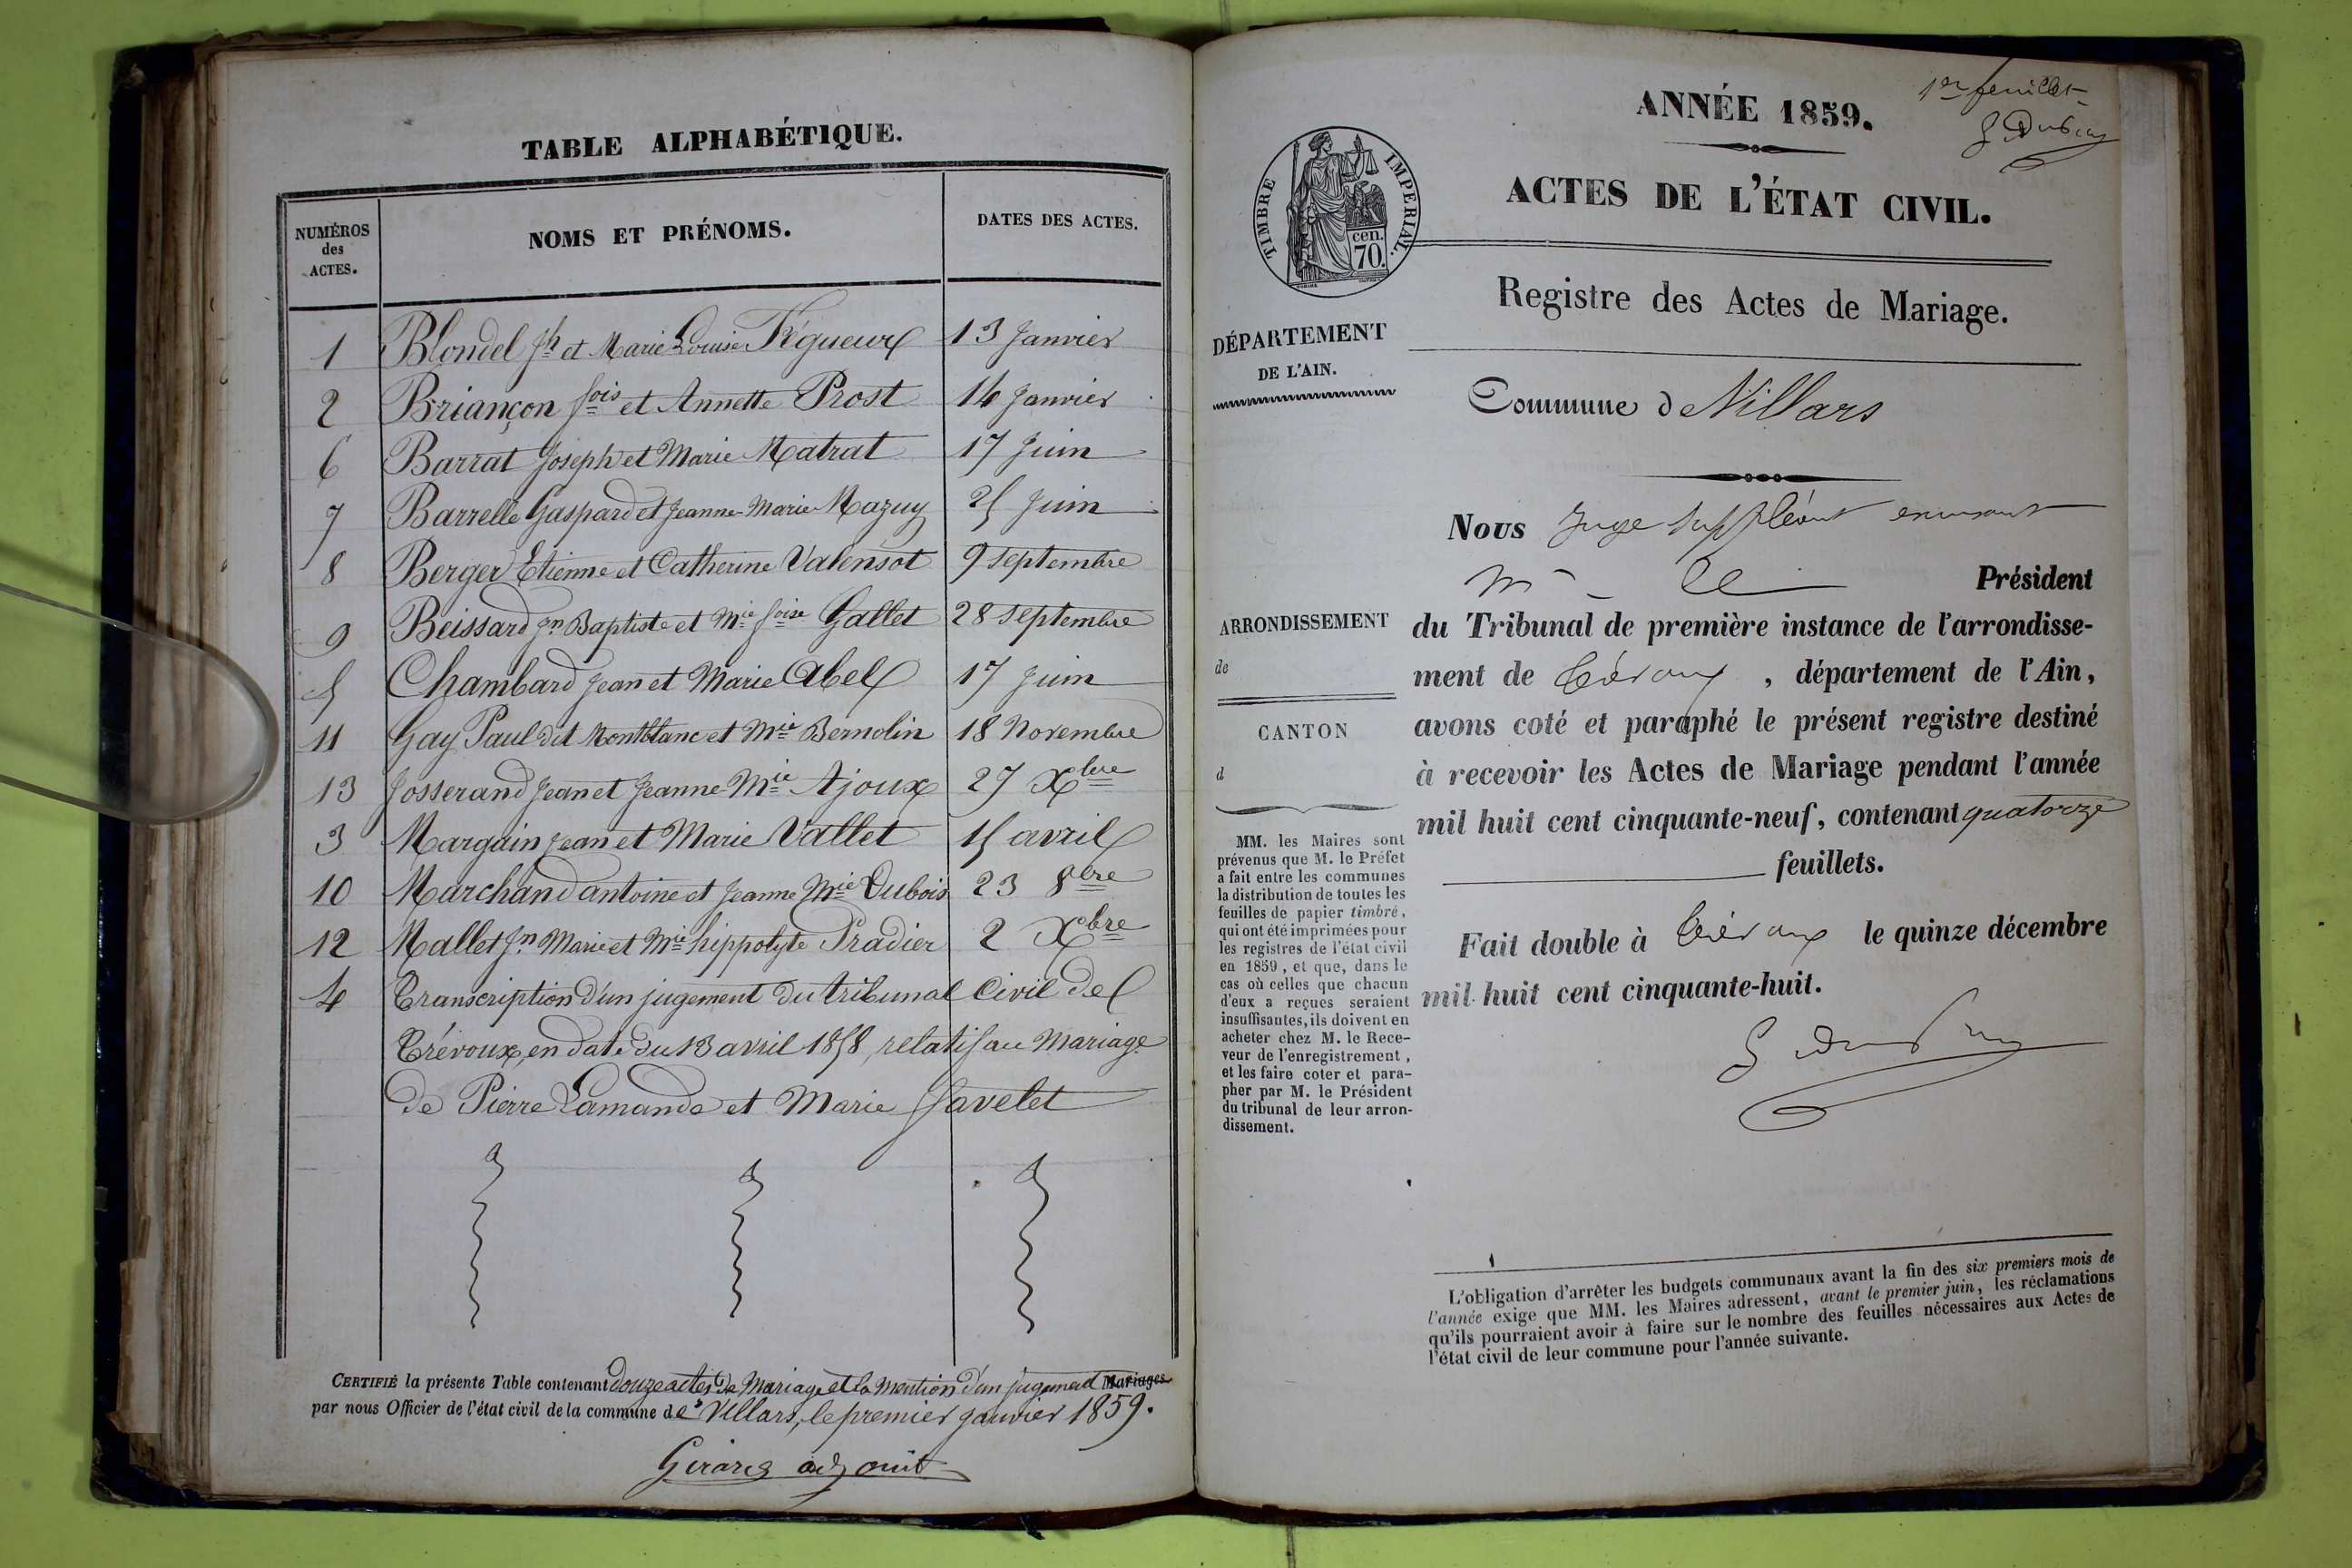 TABLE ALPHABÉTIQUE.
NUMÉROS
des
ACTES.
NOMS ET PRÉNOMS.
DATES DES ACTES.
1 Blondel Jh et Marie Louise Fégueux 13 Janvier
2 Briançon fois et Annette Prost 14 Janvier
6 Barrat Joseph et Marie Matrat 17 Juin
7 Barrelle Gaspard et Jeanne-Marie Mazuy 25 Juin
8 Berger Etienne et Catherine Valensot 9 septembre
9 Beissard Jn Baptiste et Mie foise Gallet 28 septembre
5 Chambard Jean et Marie Abel 17 Juin
11 Gay Paul dit Montblanc et Mie Bernolin 18 Novembre
13 Josserand Jean et Jeanne-Mie Ajoux 27 Xbre
3 Margain Jean et Marie Vallet 15 avril
10 Marchand antoine et Jeanne Mie Dubois 23 8bre
12 Mallet Jn Marie et Mie hippolyte Pradier 2 Xbre
4 Transcription d'un jugement du tribunal Civil de
Trévoux, en date du 13 avril 1858, relatif au Mariage
de Pierre Lamande et Marie Javelet
CERTIFIÉ la présente Table contenant douze actes de Mariage et la Mention d'un jugement Mariages
par nous Officier de l'état civil de la commune de Villars, le premier janvier 1859.
Girard adjoint
1er feuillet
ANNÉE 1859.
ACTES DE L'ÉTAT CIVIL.
TIMBRE IMPERIAL.
cen.
70.
Registre des Actes de Mariage.
DÉPARTEMENT
DE L'AIN.
Commune de Villars
Nous Juge suppléant
Président
ARRONDISSEMENT
de
CANTON
d
du Tribunal de première instance de l'arrondisse-
ment de Trévoux, département de l'Ain,
avons coté et paraphé le présent registre destiné
à recevoir les Actes de Mariage pendant l'année
mil huit cent cinquante-neuf, contenant quatorze
feuillets.
MM. les Maires sont
prévenus que M. le Préfet
a fait entre les communes
la distribution de toutes les
feuilles de papier timbré,
qui ont été imprimées pour
les registres de l'état civil
en 1859, et que, dans le
cas où celles que chacun
d'eux a reçues seraient
insuffisantes, ils doivent en
acheter chez M. le Rece-
veur de l'enregistrement,
et les faire coter et para-
pher par M. le Président
du tribunal de leur arron-
dissement.
Fait double à Trévoux le quinze décembre
mil huit cent cinquante-huit.
L'obligation d'arrêter les budgets communaux avant la fin des six premiers mois de
l'année exige que MM. les Maires adressent, avant le premier juin, les réclamations
qu'ils pourraient avoir à faire sur le nombre des feuilles nécessaires aux Actes de
l'état civil de leur commune pour l'année suivante.